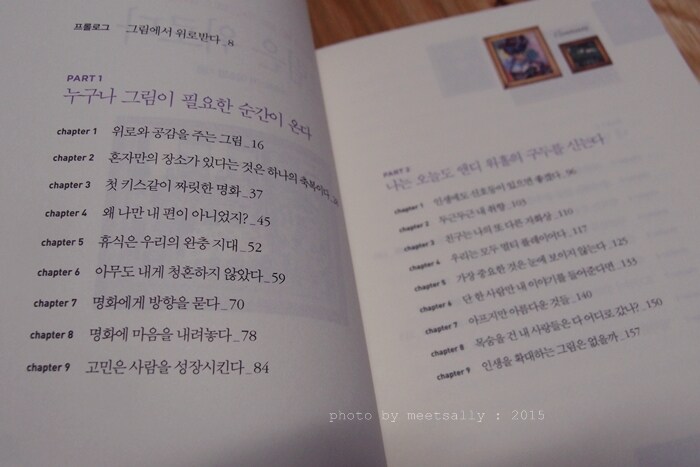 프롤로그 그림에서 위로받다_8
PART 1
누구나 그림이 필요한 순간이 온다
chapter 1 위로와 공감을 주는 그림_16
chapter 2 혼자만의 장소가 있다는 것은 하나의 축복이다
chapter 3 첫 키스같이 짜릿한 명화_37
chapter 4 왜 나만 내 편이 아니었지?_45
chapter 5 휴식은 우리의 완충 지대_52
chapter 6 아무도 내게 청혼하지 않았다_59
chapter 7 명화에게 방향을 묻다_70
chapter 8 명화에 마음을 내려놓다_78
chapter 9 고민은 사람을 성장시킨다_84
Contents
PART 2
나는 오늘도 앤디 워홀의 구두를 신는다
chapter 1 인생에도 신호등이 있으면 좋겠다_96
chapter 2 두근두근 내 취향_103
chapter 3 친구는 나의 또 다른 자화상_110
chapter 4 우리는 모두 멀티 플레이어다_117
chapter 5 가장 중요한 것은 눈에 보이지 않는다_125
chapter 6 단 한 사람만 내 이야기를 들어준다면_133
chapter 7 아프지만 아름다운 것들_140
chapter 8 목숨을 건 내 사랑들은 다 어디로 갔나?_150
chapter 9 인생을 확대하는 그림은 없을까_157
photo by meetsally : 2015